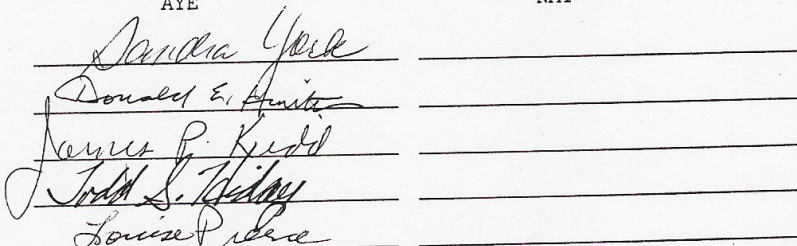 AYE NAY
Sandra York
Donald E.
James R. Kidd
Todd S. Hiday
Louise Pierce